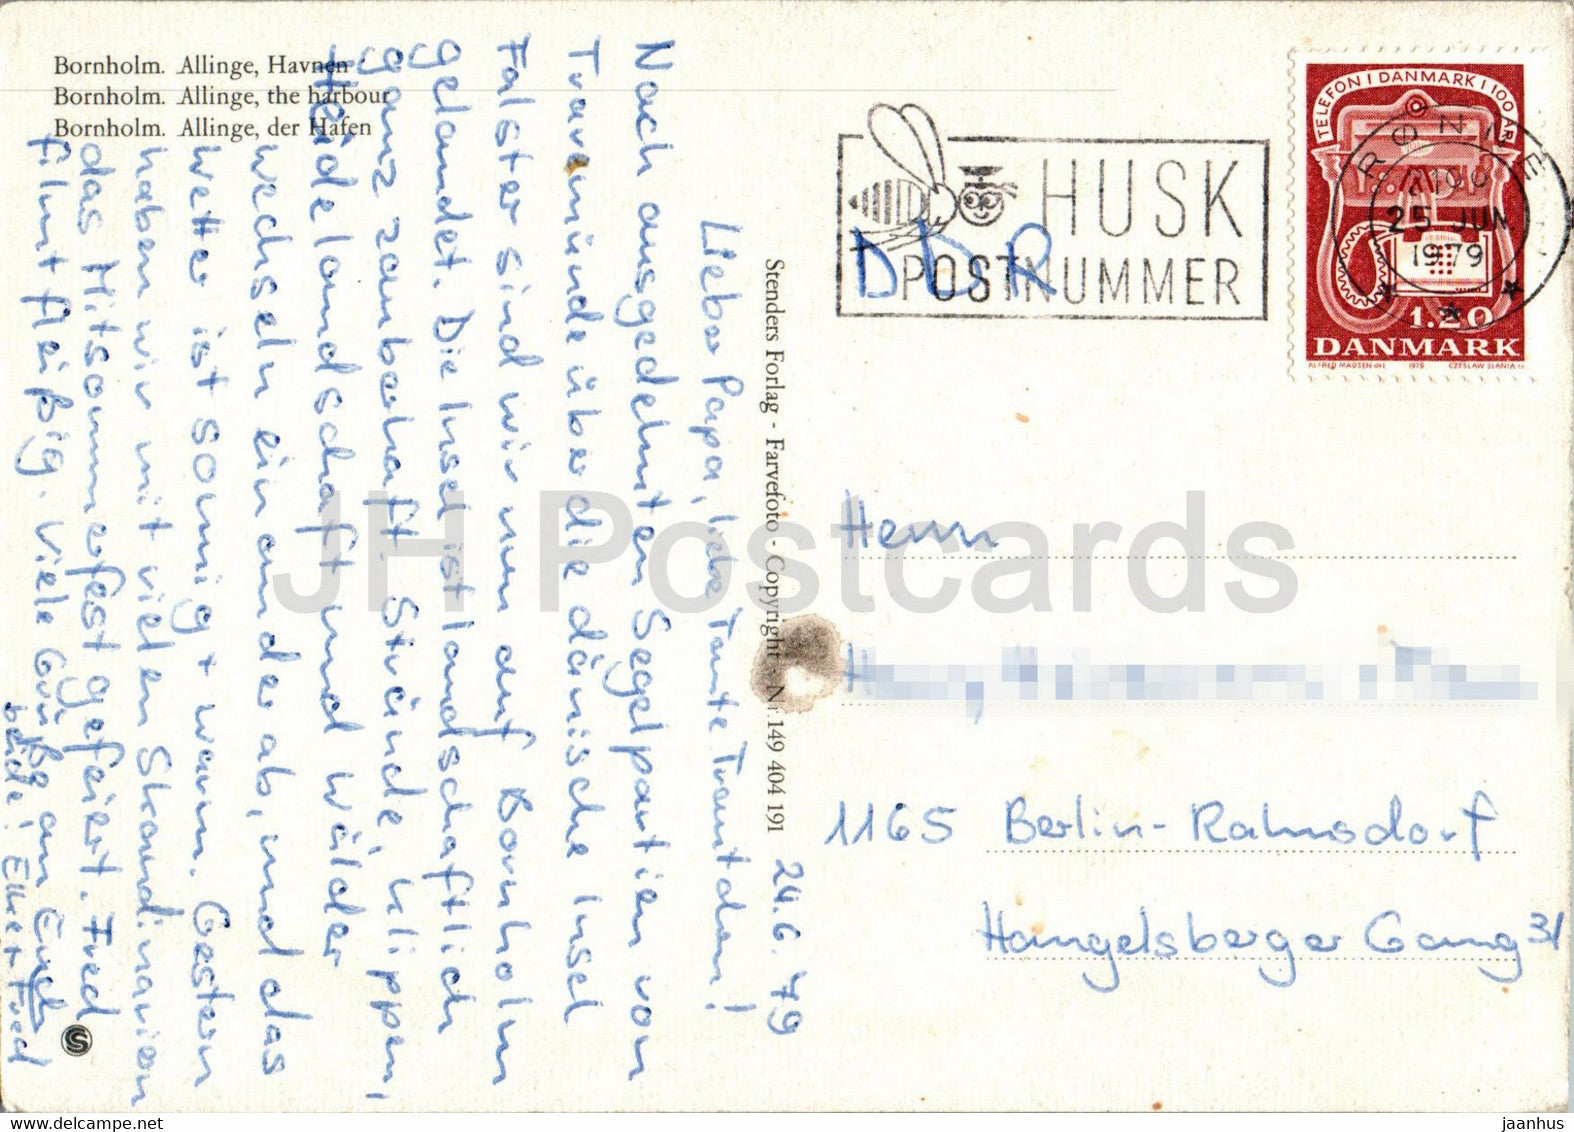 Bornholm. Allinge, Havnen
Bornholm. Allinge, the harbour
Bornholm. Allinge, der Hafen
24.6.79
Lieber Papa, liebe Tante Trautchen!
Nach ausgedehnten Segelpartien von
Travemünde über die dänische Insel
Falster sind wir nun auf Bornholm
gelandet. Die Insel ist landschaftlich
ganz zauberhaft. Strände, Klippen,
Heidelandschaft und Wälder
wechseln einander ab, und das
Wetter ist sonnig + warm. Gestern
haben wir mit vielen Skandinaviern
das Mitsommerfest gefeiert. Fred
filmt fleißig. Viele Grüße an Euch
beide! Elke + Fred
Stenders Forlag - Farvefoto - Copyright - Nr. 149 404 191
HUSK
POSTNUMMER
DDR
TELEFON I DANMARK I 100 ÅR
RØNNE
3700
25 JUN.
1979
1.20
DANMARK
ALFRED MADSEN del. 1979 CZESLAW SLANIA sc.
Herrn
1165 Berlin-Rahnsdorf
Hangelsberger Gang 31
S
JH Postcards
www.delcampe.net
jaanhus